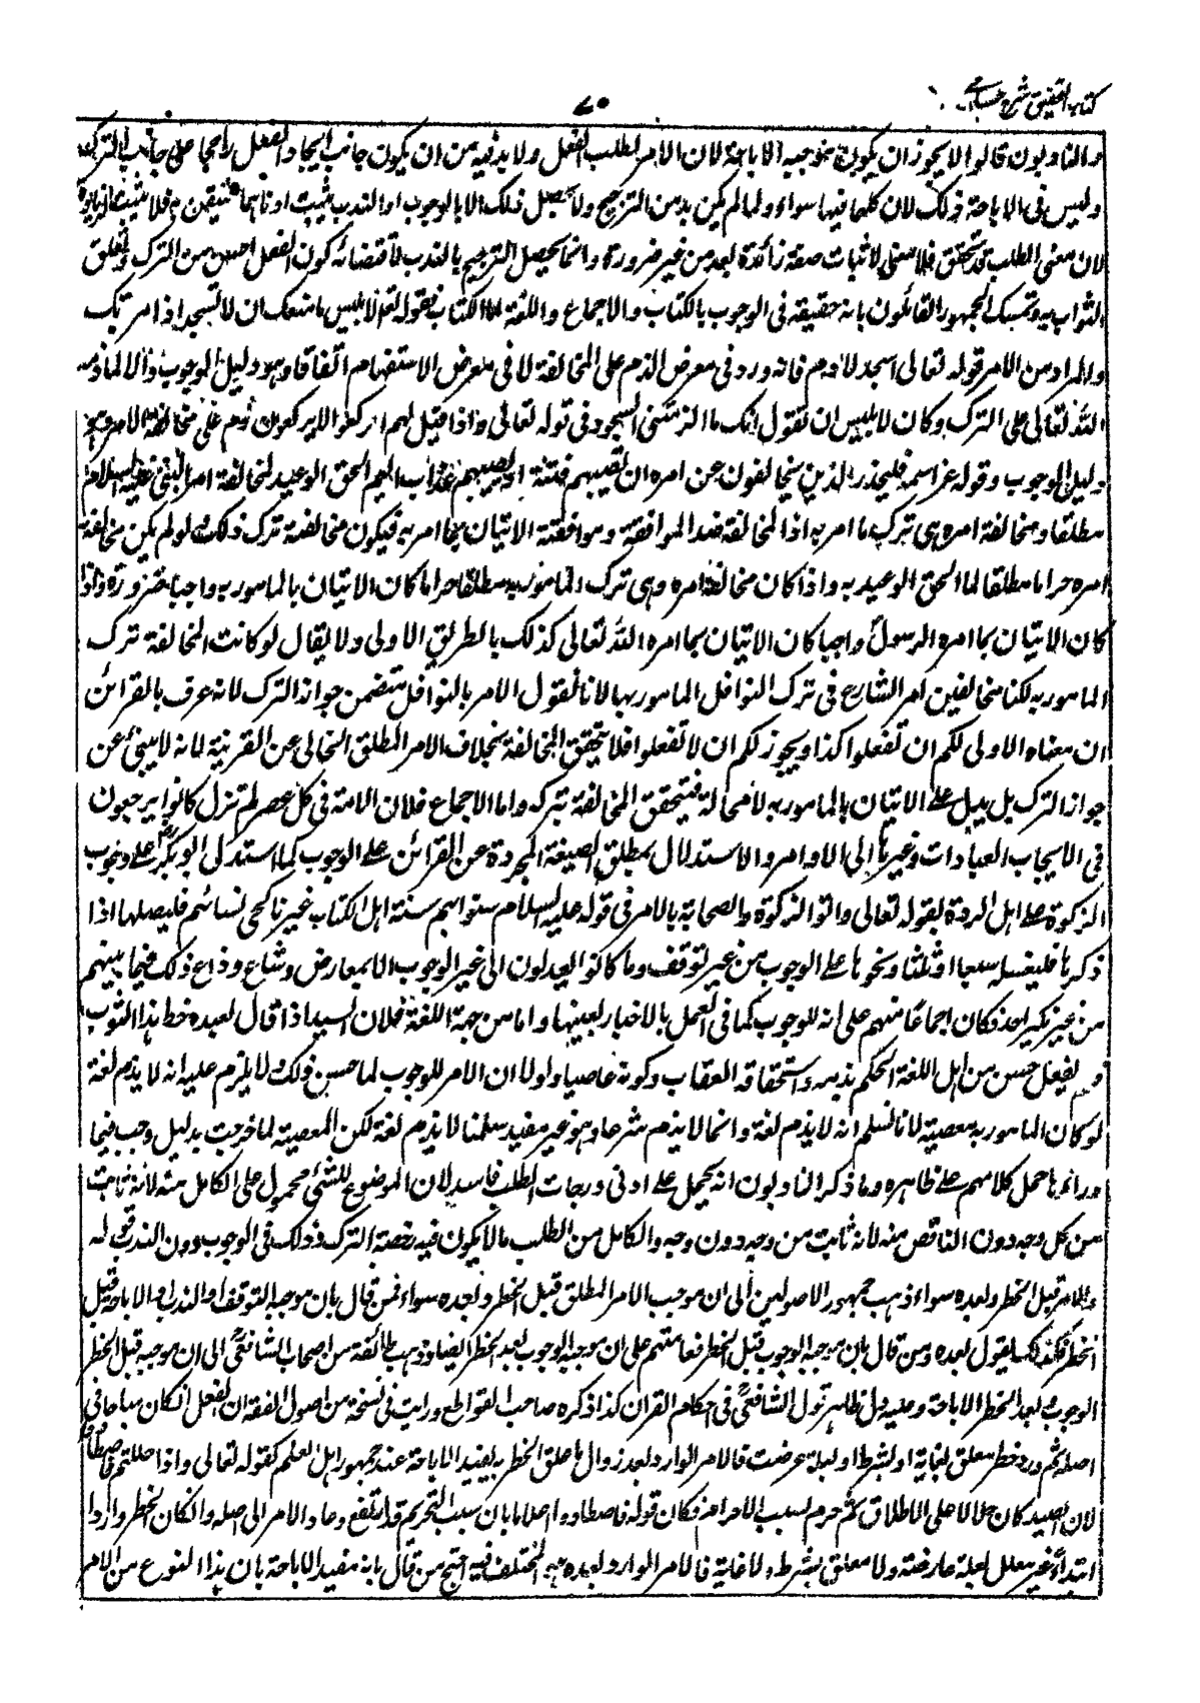 كتاب التحقيق شرح حسامى
٧٠
والنادبون قالوا لا يجوز ان يكون موجبه الاباحة لان الامر لطلب الفعل ولا بد فيه من ان يكون جانب ايجاد الفعل راجحا على جانب الترك
وليس فى الاباحة ذلك لان كليهما فيها سواء ولما لم يكن بد من الترجيح ولا يحصل ذلك الا بالوجوب او الندب يثبت ادناهما للتيقن به فلا يثبت الزيادة
لان معنى الطلب قد تحقق فلا معنى لاثبات صفة زائدة بعد من غير ضرورة وانما يحصل الترجيح بالندب لاقتضائه كون الفعل احسن من الترك وتعلق
الثواب به وتمسك الجمهور القائلون بانه حقيقة فى الوجوب بالكتاب والاجماع واللغة اما الكتاب فقوله تعالى لابليس ما منعك ان لا تسجد اذ امرتك
والمراد من الامر قوله تعالى اسجدوا لادم فانه ورد فى معرض الذم على المخالفة لا فى معرض الاستفهام اتفاقا وهو دليل الوجوب والا لما ذمه
الله تعالى على الترك وكان لابليس ان يقول انك ما الزمتنى السجود فى قوله تعالى واذا قيل لهم اركعوا لا يركعون ذم على مخالفة الامر وهو
دليل الوجوب وقوله عز اسمه فليحذر الذين يخالفون عن امره ان تصيبهم فتنة او يصيبهم عذاب اليم الحق الوعيد لمخالفة امر النبى عليه السلام
مطلقا ومخالفة امره هى ترك ما امر به اذ المخالفة ضد الموافقة وموافقته الاتيان بما امر به فيكون مخالفته ترك ذلك لو لم يكن مخالفة
امره حراما مطلقا لما الحق الوعيد به واذا كان مخالفة امره وهى ترك المامور به مطلقا حراما كان الاتيان بالمامور به واجبا ضرورة واذا
كان الاتيان بما امره الرسول واجبا كان الاتيان بما امره الله تعالى كذلك بالطريق الاولى ولا يقال لو كانت المخالفة ترك
المامور به لكنا مخالفين امر الشارع فى ترك النوافل المامور بها لانا نقول الامر بالنوافل يتضمن جواز الترك لانه عرف بالقرائن
ان معناه الاولى لكم ان تفعلوا كذا ويجوز لكم ان لا تفعلوا فلا يتحقق المخالفة بخلاف الامر المطلق الخالى عن القرينة لانه لا ينبئ عن
جواز الترك بل يدل على الاتيان بالمامور به لا محالة فيتحقق المخالفة بتركه واما الاجماع فلان الامة فى كل عصر لم تزل كانوا يرجعون
فى الايجاب العبادات وغيرها الى الاوامر والاستدلال بمطلق الصيغة المجردة عن القرائن على الوجوب كما استدل ابو بكر على وجوب
الزكوة على اهل الردة بقوله تعالى واتوا الزكوة والصحابة بالامر فى قوله عليه السلام سنوا بهم سنة اهل الكتاب غير ناكحى نسائهم فليصلها اذا
ذكرها فليغسله سبعا او ثلثا ونحوها على الوجوب من غير توقف وما كانوا يعدلون الى غير الوجوب الا لمعارض وشاع وذاع ذلك فيما بينهم
من غير نكير احد فكان اجماعا منهم على انه للوجوب كما فى العمل بالاخبار بعينها واما من جهة اللغة فلان السيد اذا قال لعبده خط هذا الثوب
ولم يفعل حسن من اهل اللغة الحكم بذمه واستحقاقه العقاب وكونه عاصيا ولولا ان الامر للوجوب لما حسن ذلك ولا يلزم عليه انه لا يذم لغة
لو كان المامور به معصية لانا نسلم انه لا يذم لغة وانما لا يذم شرعا وهو غير مفيد سلمنا لا يذم لغة لكن المعصية لما خرجت بدليل وجب فيما
وراءها حمل كلامهم على ظاهره وما ذكر النادبون انه يحمل على ادنى درجات الطلب فاسد لان الموضوع للشئ محمول على الكامل منه لانه ثابت
من كل وجه دون الناقص منه لانه ثابت من وجه دون وجه والكامل من الطلب ما لا يكون فيه رخصة الترك وذلك فى الوجوب دون الندب قوله
والامر قبل الحظر وبعده سواء ذهب جمهور الاصوليين الى ان موجب الامر المطلق قبل الحظر وبعده سواء فمن قال بان موجبه التوقف او الندب او الاباحة قبل
الحظر فكذلك يقول بعده ومن قال بان موجبه الوجوب قبل الحظر فعامتهم على ان موجبه الوجوب بعد الحظر ايضا وذهب طائفة من اصحاب الشافعى الى ان موجبه قبل الحظر
الوجوب وبعد الحظر الاباحة وعليه دل ظاهر قول الشافعى فى احكام القران كذا ذكره صاحب القواطع ورايت فى نسخة من اصول الفقه ان الفعل ان كان مباحا فى
اصله ثم ورد حظر معلق بغاية او بشرط او لعلة عرضت فالامر الوارد بعد زوال ما علق الحظر به يفيد الاباحة عند جمهور اهل العلم كقوله تعالى واذا حللتم فاصطادوا
لان الصيد كان حلالا على الاطلاق ثم حرم لسبب الاحرام فكان قوله فاصطادوا اعلاما بان سبب التحريم قد ارتفع وعاد الامر الى اصله وان كان الحظر واردا
ابتداء غير معلل بعلة عارضة ولا معلق بشرط ولا غاية فالامر الوارد بعده هو المختلف فيه احتج من قال بانه مفيد الاباحة بان هذا النوع من الامر